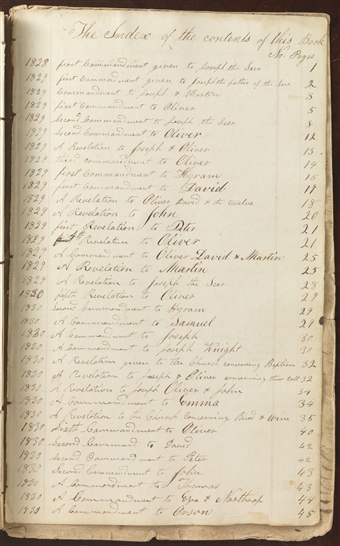 The Index of the contents of this Book
No. Pages
1828 first Commandment given to Joseph the Seer 1
1829 first Commandment given to Joseph the father of the Seer 2
1829 Commandment to Joseph & Martin 3
1829 first Commandment to Oliver 5
1829 Second Commandment to Joseph the Seer 8
1829 Second Commandment to Oliver 12
1829 A Revelation to Joseph & Oliver 13
1829 third commandment to Oliver 14
1829 first Commandment to Hyram 15
1829 first Commandment to David
1829 A Revelation to Oliver David & the twelve 18
1829 A Revelation to John 20
1829 first Revelation to Peter 21
1829 Revelation to Oliver 21
1829 A Commandment to Oliver David & Martin 25
1829 A Revelation to Martin 25
1829 A Revelation to Joseph the Seer 28
1830 fifth Revelation to Oliver 29
1830 Second Commandment to Hyram 29
1830 A Commandment to Samuel 29
1830 A Commandment to Joseph 30
1830 A Commandment to Joseph Knight 30
1830 A Revelation given to the Church concerning Baptism 32
1830 A Revelation to Joseph & Oliver concerning their Call 32
1830 A Revelation to Joseph Oliver & John 34
1830 A Commandment to Emma 34
1830 A Revelation to the Church Concerning Bread & Wine 35
1830 Sixth Commandment to Oliver 40
1830 Second Command to David 42
1830 Second Commandment to Peter 42
1830 Second Commandment to John 43
1830 A Commandment to Thomas 43
1830 A Commandment to Ezra & Northrop 44
1830 A Commandment to Orson 45